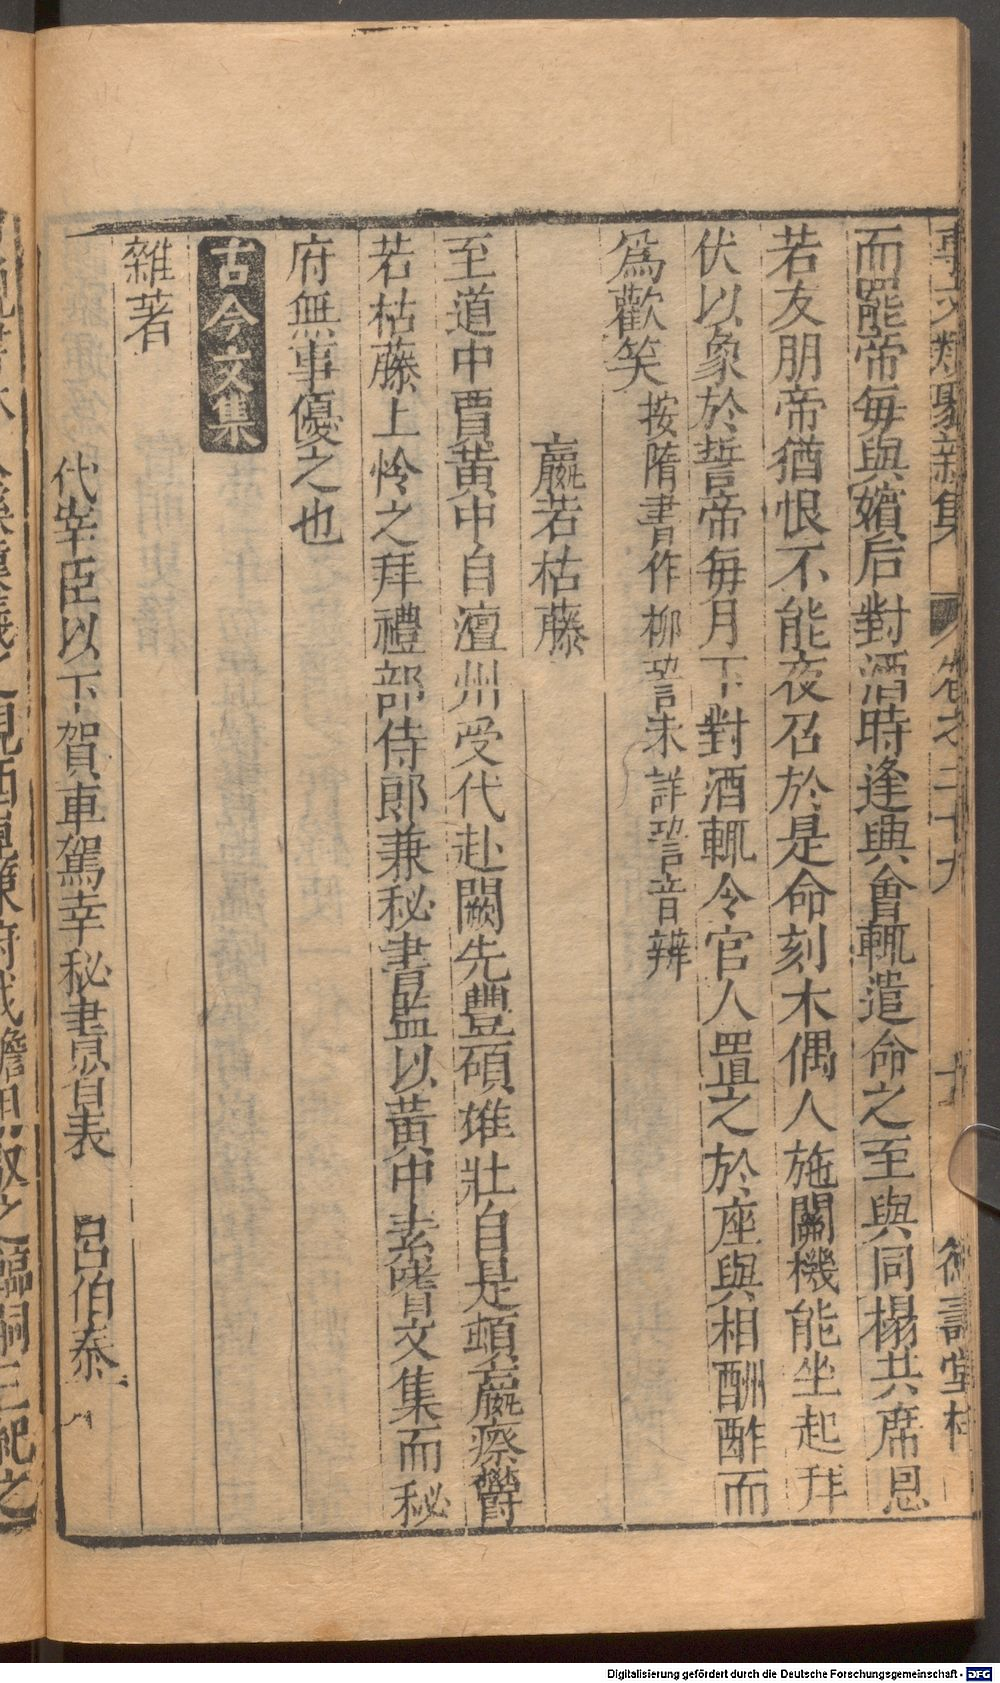 事文類聚新集 卷之二十九 德壽堂梓
而罷帝每與嬪后對酒時逢興會輒遣命之至與同榻共席恩
若友朋帝猶恨不能夜召於是命刻木偶人施關機能坐起拜
伏以象於䛒帝每月下對酒輒令宮人置之於座與相酬酢而
爲歡笑 按隋書作柳䛒未詳䛒音辨
羸若枯藤
至道中賈黃中自澶州受代赴闕先豐碩雄壯自是頓羸瘵欝
若枯藤上怜之拜禮部侍郎兼秘書監以黃中素嗜文集而秘
府無事優之也
古今文集
雜著
代宰臣以下賀車駕幸秘書省表 呂伯泰
Digitalisierung gefördert durch die Deutsche Forschungsgemeinschaft - DFG